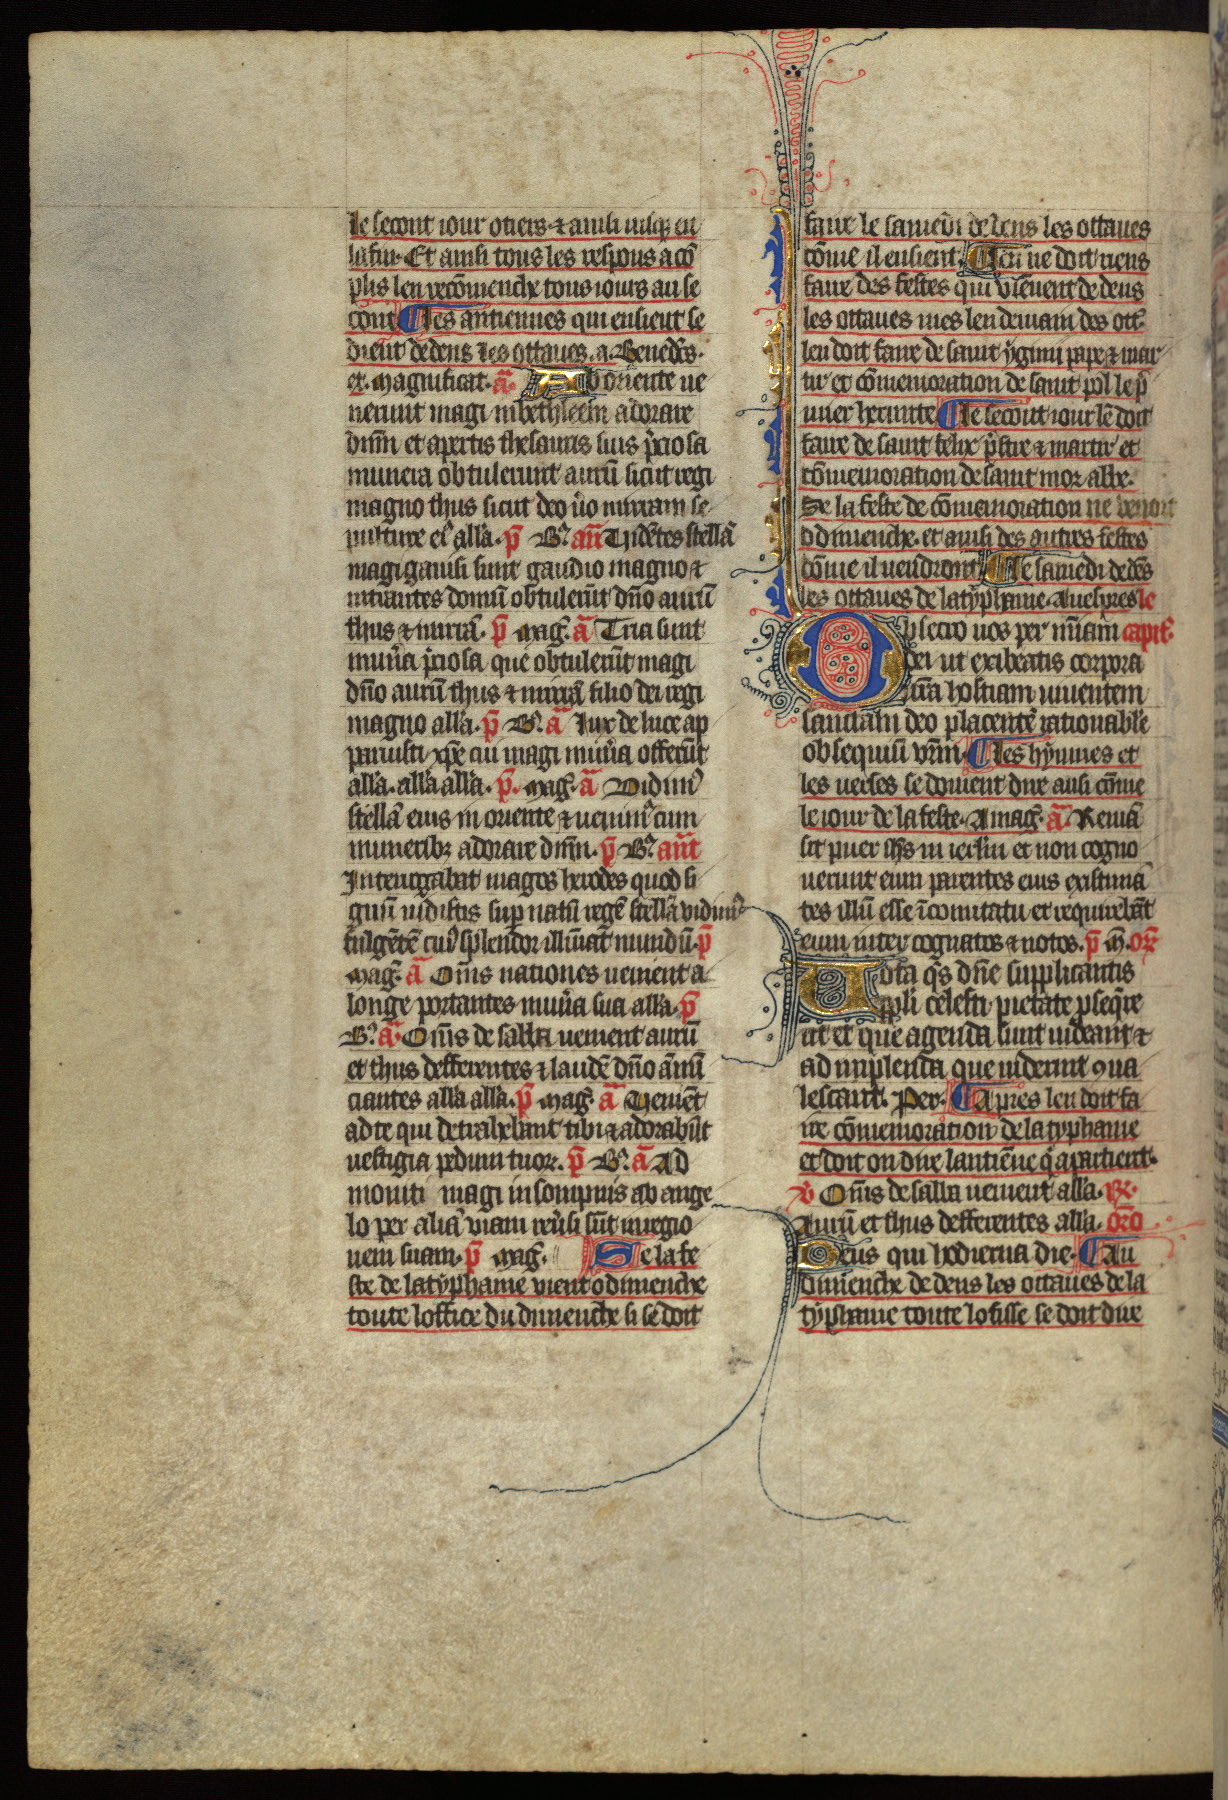 le secont iour otiers· ⁊ ausi iusqꝫ en
la fin· Et ausi tous les respons acō
plis len recōmenche tous iours au se
cont ¶ Les antiennes qui ensient se
dient dedens les ottaues. a. Benedc̄s·
et· magnificat· ā· Ab oriente ue
nerunt magi in bethleem adorare
dn̄m et apertis thesauris suis p̄ciosa
munera obtulerunt aurū sicut regi
magno thus sicut deo ũo mirram se
pulture eiꝰ all'a· p̄ B'. an̄ Uidētes stellā
magi gauisi sunt gaudio magno ⁊
intrantes domū obtulerūt dño aurū
thus ⁊ mirrā· p̄ mag'. ā Tria sunt
mun̄a p̄ciosa que obtulerūt magi
dño aurū thus ⁊ mirrā filio dei regi
magno all'a· p̄ B'. ā Lux de luce ap
paruisti xp̄e cui magi mun̄a offerūt
all'a· all'a all'a· p̄· mag'· ā Uidimꝰ
stellā eius in oriente ⁊ uenimꝰ cum
muneribꝫ adorare dn̄m· p̄ B'. an̄t
Interrogabat magos herodes quod si
gnū uidistis sup natū regē stellā vidimꝰ
fulgētē cuiꝰ splendor illuīat mundū· p̄
mag'. ā Om̄s nationes uenient a
longe portantes mun̄a sua all'a· p̄
B'. ā· Om̄s de salla uenient aurū
et thus defferentes ⁊ laudē dño ānū
ciantes all'a all'a· p̄ mag'. ā Ueniēt
ad te qui detrahebant tibi ⁊ adorabūt
uestigia pedum tuoꝝ. p̄ B'. ā Ad
moniti magi in sompnis ab ange
lo per aliā viam reũsi sūt in regio
nem suam· p̄ mag'. Se la fe
ste de latyphanie vient o dimenche
toute loffice du dimenche si se doit
faire le samedi dedens les ottaues
cōme il ensient. ¶ Len ne doit riens
faire des festes qui viēnent dedens
les ottaues mes lendemain des ott'.
len doit faire de saint ygini pape ⁊ mar
tir et cōmemoration de saint pol le p̄
mier hermite ¶ Le secont iour lē doit
faire de saint felix p̄stre ⁊ martir et
cōmemoration de saint mor abbe·
Se la feste de cōmemoration ne venoit
o dimenche· et ausi des autres festes
cōme il uendront ¶ Le samedi dedēs
les ottaues de latyphanie· A uespres le
Obsecro uos per mīam capit'.
dei ut exibeatis corpora
ur̄a hostiam uiuentem
sanctam deo placentē rationabile
obsequiū vr̄m· ¶ Les hymnes et
les uerses se doiuent dire ausi cōme
le iour de la feste· A mag'. ā· Remā
sit puer ihs in ierl'm et non cogno
uerunt eum parentes eius existimā
tes illū esse ī comitatu et requirebāt
eum inter cognatos ⁊ notos. p̄ m̄. or̄
Uota q̄s dñe supplicantis
ppl'i celesti pietate pseq̄re
ut et que agenda sunt uideant ⁊
ad implenda que uiderint ꝯua
lescant. Per. ¶ Apres len doit fa
ire cōmemoration de la typhanie
et doit on dire lantiēne q̄ apartient·
℣ Om̄s de salla uenient all'a· ℟·
Aurū et thus defferentes all'a· orō
Deus qui hodierna die· ¶ Au
dimenche dedens les ottaues de la
typhanie toute lofisse se doit dire